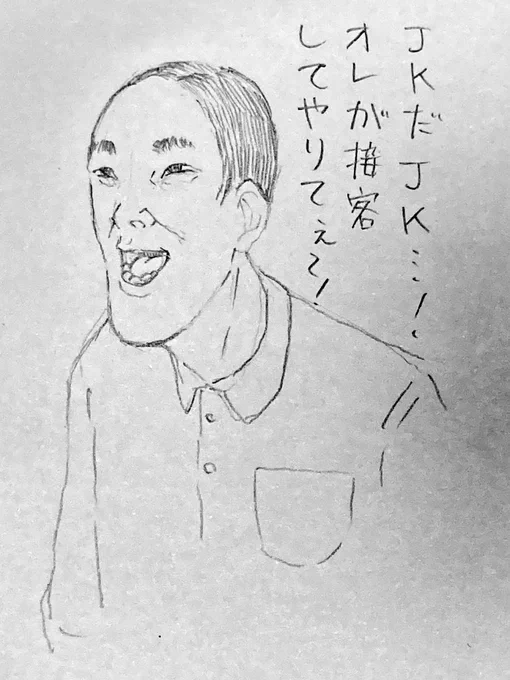 JKだJK…!
オレが接客
してやりてぇ〜!